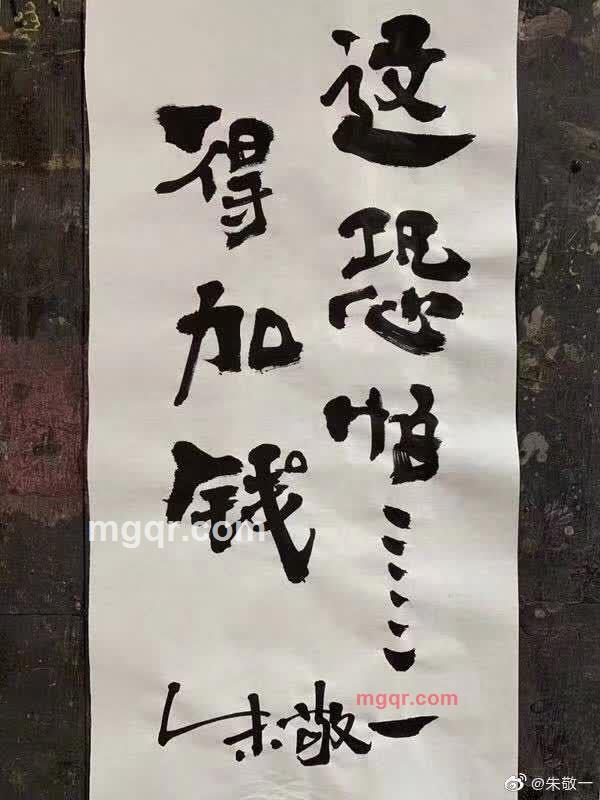 这恐怕……
得加钱
朱敬一
mgqr.com
mgqr.com
@朱敬一